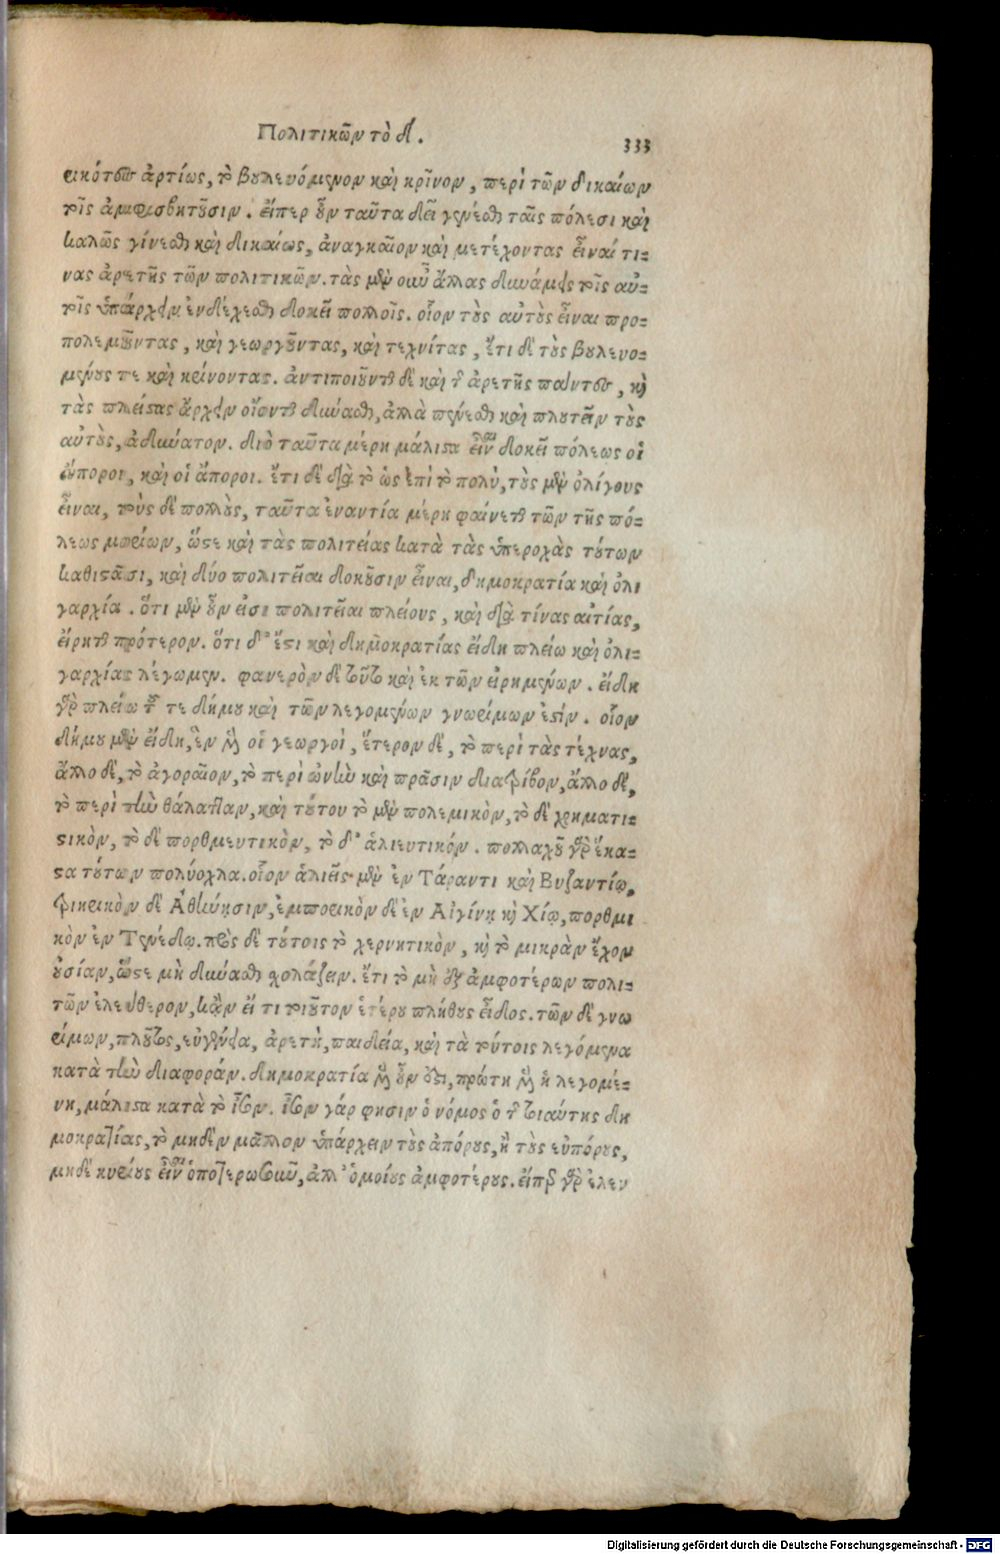 Πολιτικῶν τὸ Δ΄.
333
εικότως ἀρτίως, τὸ βουλευόμενον καὶ κρῖνον, περὶ τῶν δικαίων
τοῖς ἀμφισβητοῦσιν. εἴπερ οὖν ταῦτα δεῖ γενέσθαι ταῖς πόλεσι καὶ
καλῶς γίνεσθαι καὶ δικαίως, ἀναγκαῖον καὶ μετέχοντας εἶναί τι-
νας ἀρετῆς τῶν πολιτικῶν. τὰς μὲν οὖν ἄλλας δυνάμεις τοῖς αὐ-
τοῖς ὑπάρχειν ἐνδέχεσθαι δοκεῖ πολλοῖς. οἷον τοὺς αὐτοὺς εἶναι προ-
πολεμοῦντας, καὶ γεωργοῦντας, καὶ τεχνίτας, ἔτι δὲ τοὺς βουλευο-
μένους τε καὶ κρίνοντας. ἀντιποιοῦνται δὲ καὶ τῆς ἀρετῆς πάντες, καὶ
τὰς πλείστας ἄρχειν οἴονται δύνασθαι, ἀλλὰ πένεσθαι καὶ πλουτεῖν τοὺς
αὐτοὺς, ἀδύνατον. διὸ ταῦτα μέρη μάλιστα εἶναι δοκεῖ πόλεως οἱ
εὔποροι, καὶ οἱ ἄποροι. ἔτι δὲ διὰ τὸ ὡς ἐπὶ τὸ πολὺ, τοὺς μὲν ὀλίγους
εἶναι, τοὺς δὲ πολλοὺς, ταῦτα ἐναντία μέρη φαίνεται τῶν τῆς πό-
λεως μορίων, ὥστε καὶ τὰς πολιτείας κατὰ τὰς ὑπεροχὰς τούτων
καθιστᾶσι, καὶ δύο πολιτεῖαι δοκοῦσιν εἶναι, δημοκρατία καὶ ὀλι
γαρχία. ὅτι μὲν οὖν εἰσι πολιτεῖαι πλείους, καὶ διὰ τίνας αἰτίας,
εἴρηται πρότερον. ὅτι δ' ἔστι καὶ δημοκρατίας εἴδη πλείω καὶ ὀλι-
γαρχίας λέγωμεν. φανερὸν δὲ τοῦτο καὶ ἐκ τῶν εἰρημένων. εἴδη
γὰρ πλείω τοῦ τε δήμου καὶ τῶν λεγομένων γνωρίμων ἐστίν. οἷον
δήμου μὲν εἴδη, ἓν μὲν οἱ γεωργοὶ, ἕτερον δὲ, τὸ περὶ τὰς τέχνας,
ἄλλο δὲ, τὸ ἀγοραῖον, τὸ περὶ ὠνὴν καὶ πρᾶσιν διατρίβον, ἄλλο δὲ,
τὸ περὶ τὴν θάλατταν, καὶ τούτου τὸ μὲν πολεμικὸν, τὸ δὲ χρηματι-
στικὸν, τὸ δὲ πορθμευτικὸν, τὸ δ' ἁλιευτικόν. πολλαχοῦ γὰρ ἕκα-
στα τούτων πολύοχλα. οἷον ἁλιεῖς μὲν ἐν Τάραντι καὶ Βυζαντίῳ,
τριηρικὸν δὲ Ἀθήνησιν, ἐμπορικὸν δὲ ἐν Αἰγίνῃ καὶ Χίῳ, πορθμι
κὸν ἐν Τενέδῳ. πρὸς δὲ τούτοις τὸ χερνητικὸν, καὶ τὸ μικρὰν ἔχον
οὐσίαν, ὥστε μὴ δύνασθαι σχολάζειν. ἔτι τὸ μὴ ἐξ ἀμφοτέρων πολι-
τῶν ἐλεύθερον, κἂν εἴ τι τοιοῦτον ἑτέρου πλήθους εἶδος. τῶν δὲ γνω
ρίμων, πλοῦτος, εὐγένεια, ἀρετὴ, παιδεία, καὶ τὰ τούτοις λεγόμενα
κατὰ τὴν διαφοράν. δημοκρατία μὲν οὖν ἐστι, πρώτη μὲν ἡ λεγομέ-
νη, μάλιστα κατὰ τὸ ἴσον. ἴσον γάρ φησιν ὁ νόμος ὁ τῆς τοιαύτης δη
μοκρατίας, τὸ μηδὲν μᾶλλον ὑπάρχειν τοὺς ἀπόρους, ἢ τοὺς εὐπόρους,
μηδὲ κυρίους εἶναι ὁποτερωσοῦν, ἀλλ' ὁμοίους ἀμφοτέρους. εἴπερ γὰρ ἐλευ
Digitalisierung gefördert durch die Deutsche Forschungsgemeinschaft - DFG